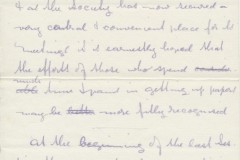 & as the Society has now secured a
very central & convenient place for its
meetings it is earnestly hoped that
the efforts of those who spend
time & pains in getting up papers
may be more fully recognised
At the Beginning of the last Ses-